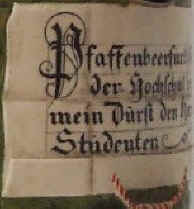 Pfaffenbeerfur
Der Hochschul
mein Dürst den
Studenten